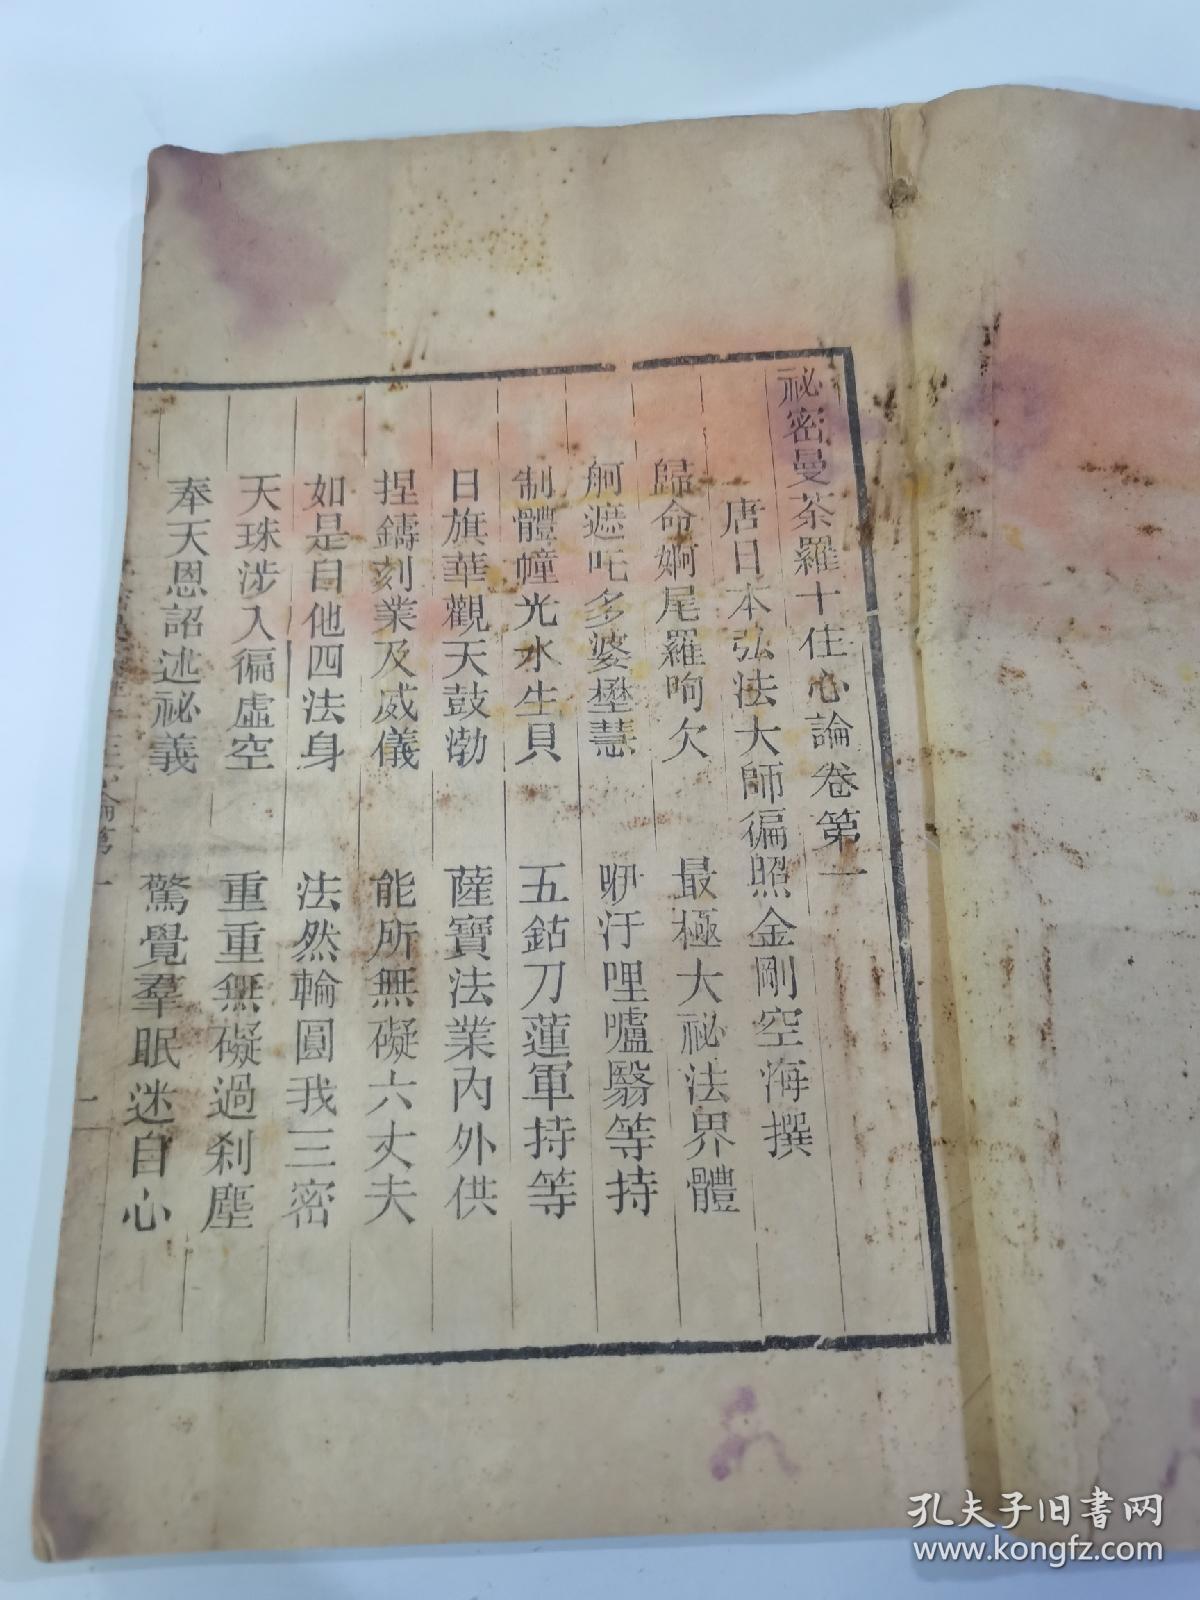 祕密曼茶羅十住心論卷第一
唐日本弘法大師徧照金剛空海撰
歸命婀尾羅呴欠　最極大祕法界體
舸遮吒多婆壄慧　咿汙哩嚧翳等持
制體幢光水生貝　五鈷刀蓮軍持等
日旗華觀天鼓渤　薩寶法業內外供
捏鑄刻業及威儀　能所無礙六丈夫
如是自他四法身　法然輪圓我三密
天珠涉入徧虛空　重重無礙過刹塵
奉天恩詔述祕義　驚覺羣眠迷自心
論第一
二
孔夫子旧书网
www.kongfz.com